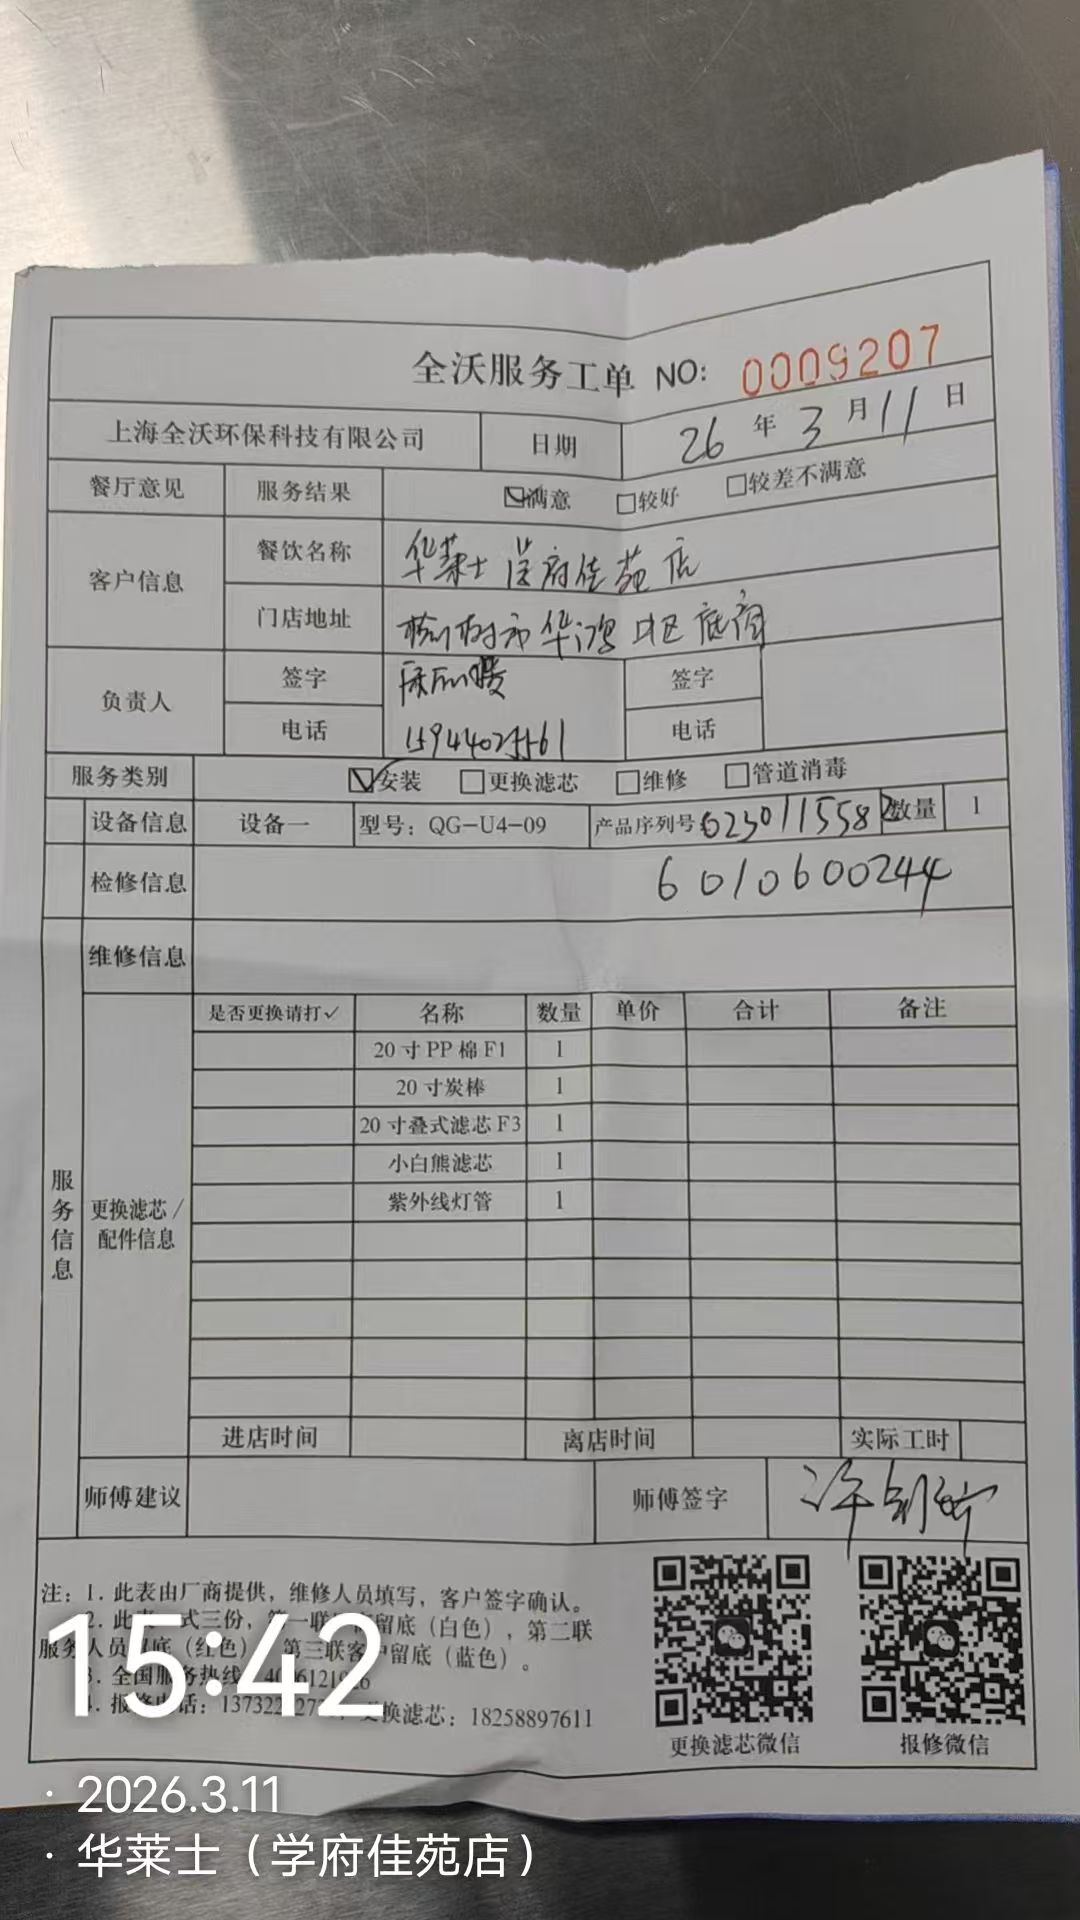 全沃服务工单 NO: 0009207
上海全沃环保科技有限公司 日期 26 年 3 月 11 日
餐厅意见 服务结果 ☑满意 □较好 □较差不满意
客户信息 餐饮名称 华莱士学府佳苑店
门店地址 榆树市华鸿 底商
负责人 签字 签字
电话 15944025561 电话
服务类别 ☑安装 □更换滤芯 □维修 □管道消毒
设备信息 设备一 型号：QG-U4-09 产品序列号 6230115582 数量 1
检修信息 6010600244
维修信息
服务信息
更换滤芯/配件信息
是否更换请打✓ 名称 数量 单价 合计 备注
20寸PP棉F1 1
20寸炭棒 1
20寸叠式滤芯F3 1
小白熊滤芯 1
紫外线灯管 1
进店时间 离店时间 实际工时
师傅建议 师傅签字
注：1. 此表由厂商提供，维修人员填写，客户签字确认。
2. 此 一式三份，第一联 留底（白色），第二联
服务人员 底（红色） 第三联客户留底（蓝色）。
3. 全国服务热线
4. 报修电话： 更换滤芯：18258897611
更换滤芯微信 报修微信
15:42
· 2026.3.11
· 华莱士（学府佳苑店）